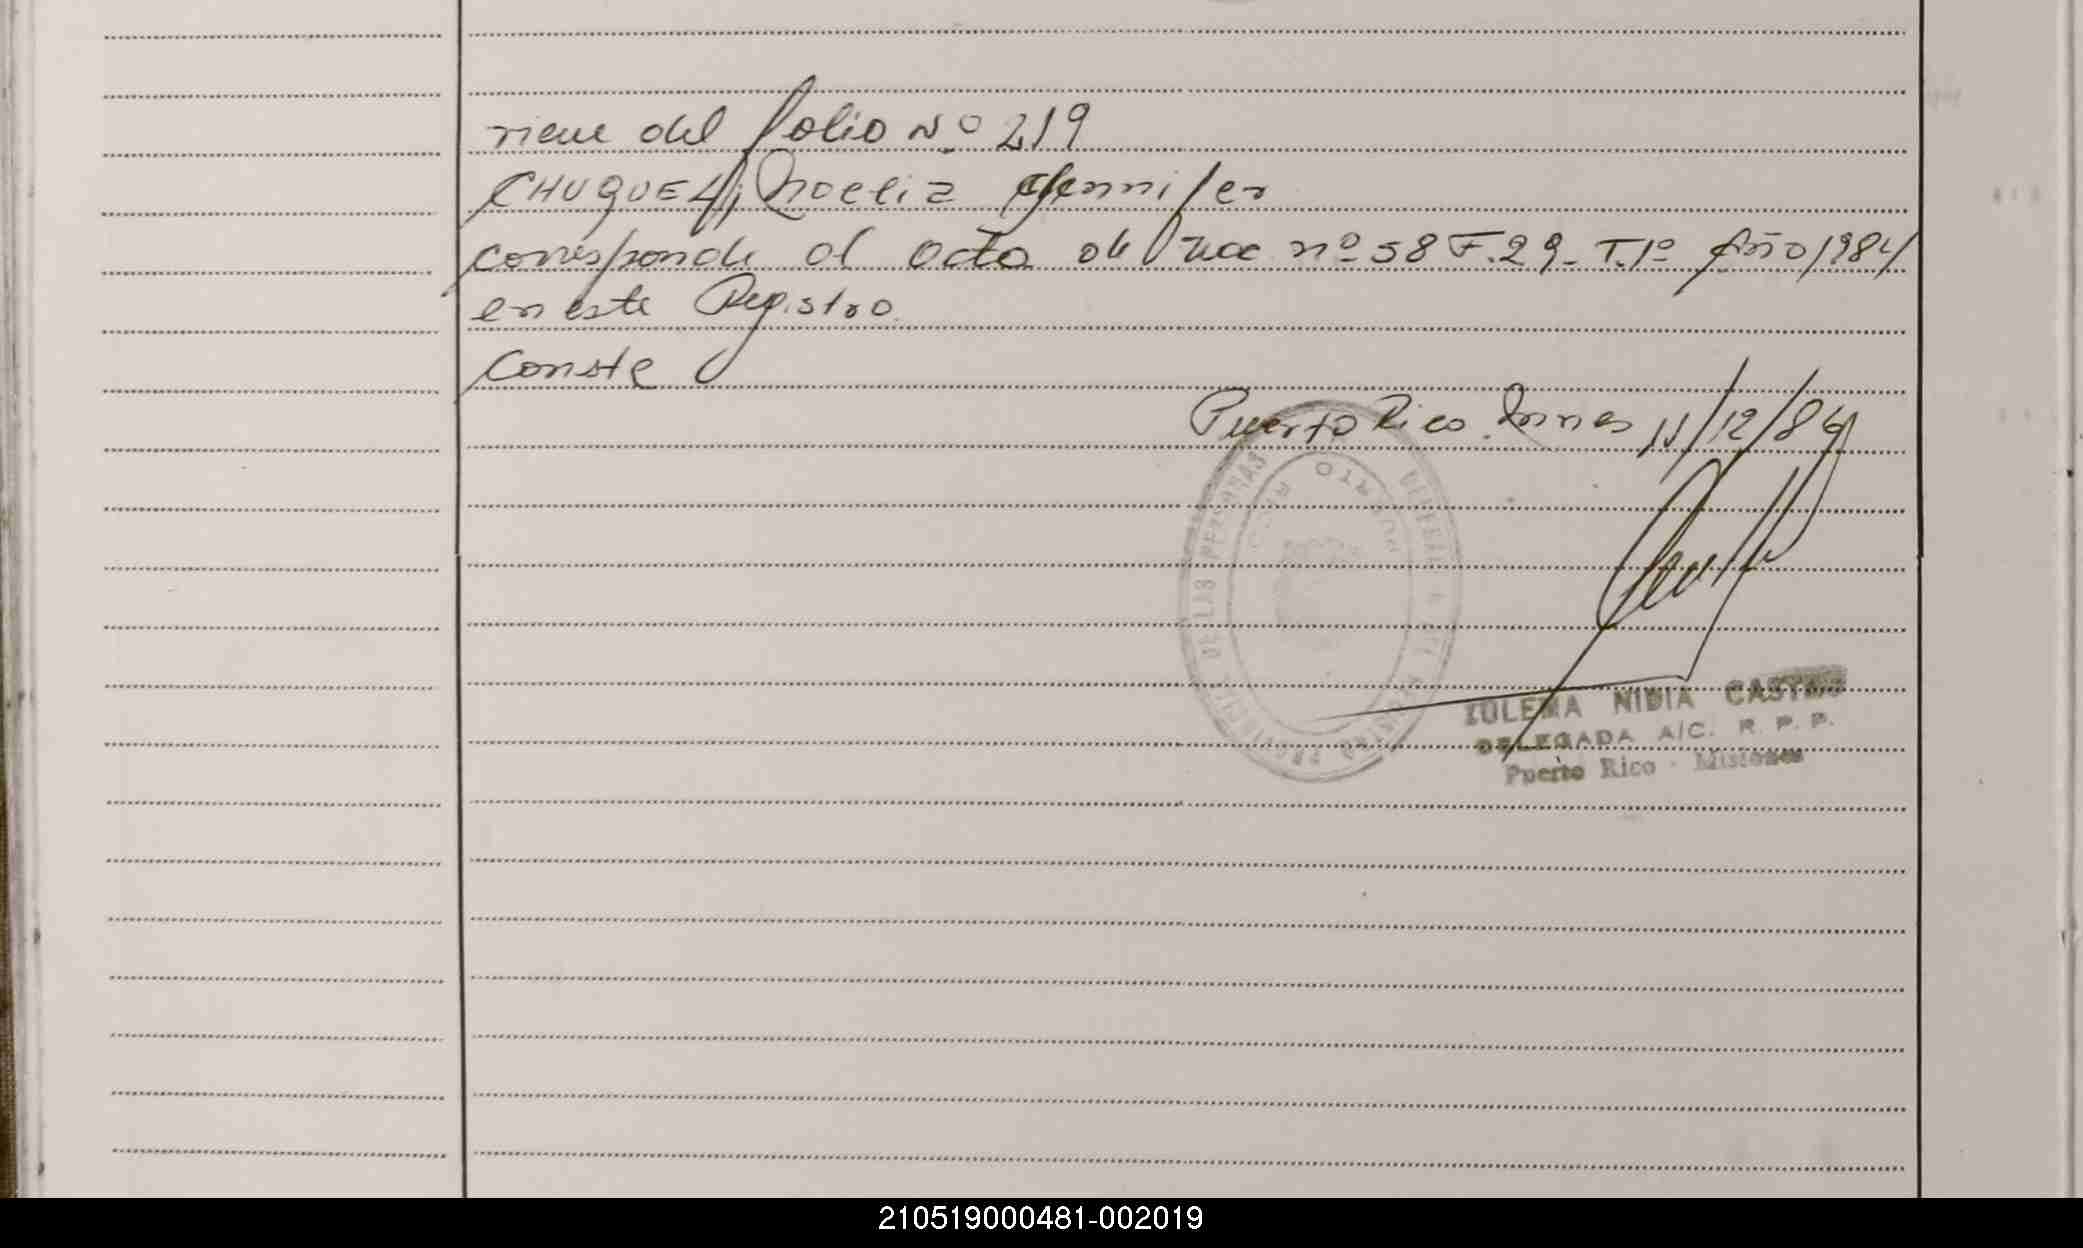 viene del folio Nº 219
CHUQUEL, Noelia Jennifer
corresponde al acta de Nac nº 58 F. 29 - T. 1º Año 1984
en este Registro
Conste
Puerto Rico Mnes 11/12/84
ZULEMA NIDIA CASTRO
DELEGADA A/C. R. P. P.
Puerto Rico - Misiones
PROVINCIAL DE LAS PERSONAS
PUERTO RICO
210519000481-002019